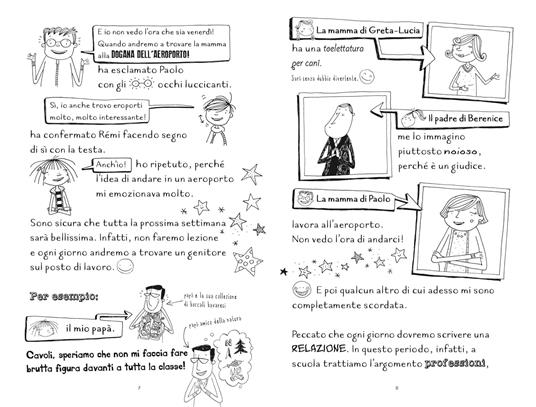 E io non vedo l'ora che sia venerdì!
Quando andremo a trovare la mamma
alla DOGANA DELL'AEROPORTO!
ha esclamato Paolo
con gli occhi luccicanti.
Sì, io anche trovo eroporti
molto, molto interessante!
ha confermato Rémi facendo segno
di sì con la testa.
Anch'io! ho ripetuto, perché
l'idea di andare in un aeroporto
mi emozionava molto.
Sono sicura che tutta la prossima settimana
sarà bellissima. Infatti, non faremo lezione
e ogni giorno andremo a trovare un genitore
sul posto di lavoro.
Per esempio:
il mio papà.
papà e la sua collezione
di boccali bavaresi
papà amico della natura
Cavoli, speriamo che non mi faccia fare
brutta figura davanti a tutta la classe!
7
La mamma di Greta-Lucia
ha una toelettatura
per cani.
Sarà senza dubbio divertente.
Il padre di Berenice
me lo immagino
piuttosto noioso,
perché è un giudice.
La mamma di Paolo
lavora all'aeroporto.
Non vedo l'ora di andarci!
E poi qualcun altro di cui adesso mi sono
completamente scordata.
Peccato che ogni giorno dovremo scrivere una
RELAZIONE. In questo periodo, infatti, a
scuola trattiamo l'argomento professioni,
8